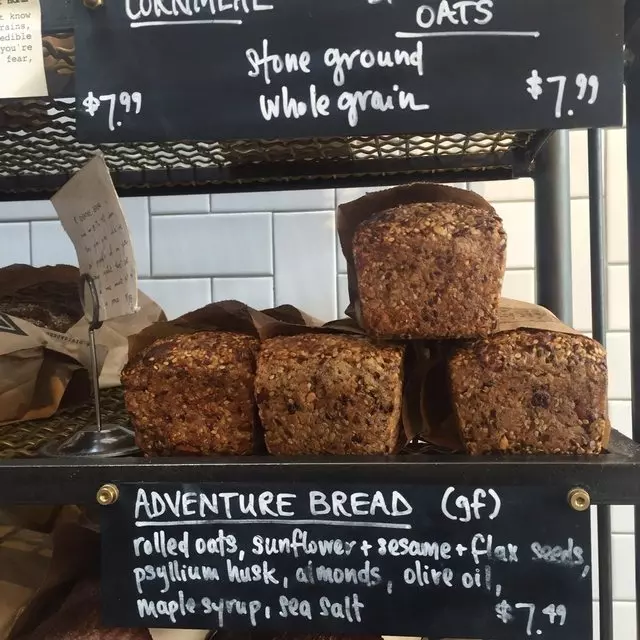 know
rains,
edible
you're
fear,
CORNMEAL
OATS
Stone ground
whole grain
$7.99
$7.99
ADVENTURE BREAD (gf)
rolled oats, sunflower + sesame + flax seeds,
psyllium husk, almonds, olive oil,
maple syrup, sea salt
$7.49